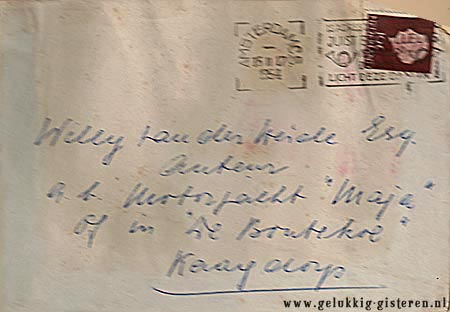 AMSTERDAM
1954
JUIST
LICHT DEZE
Willy van der Heide Esq.
Auteur
a.b. Motorjacht "Maja"
Of in "De Bontekoe"
Kaagdorp
www.gelukkig-gisteren.nl